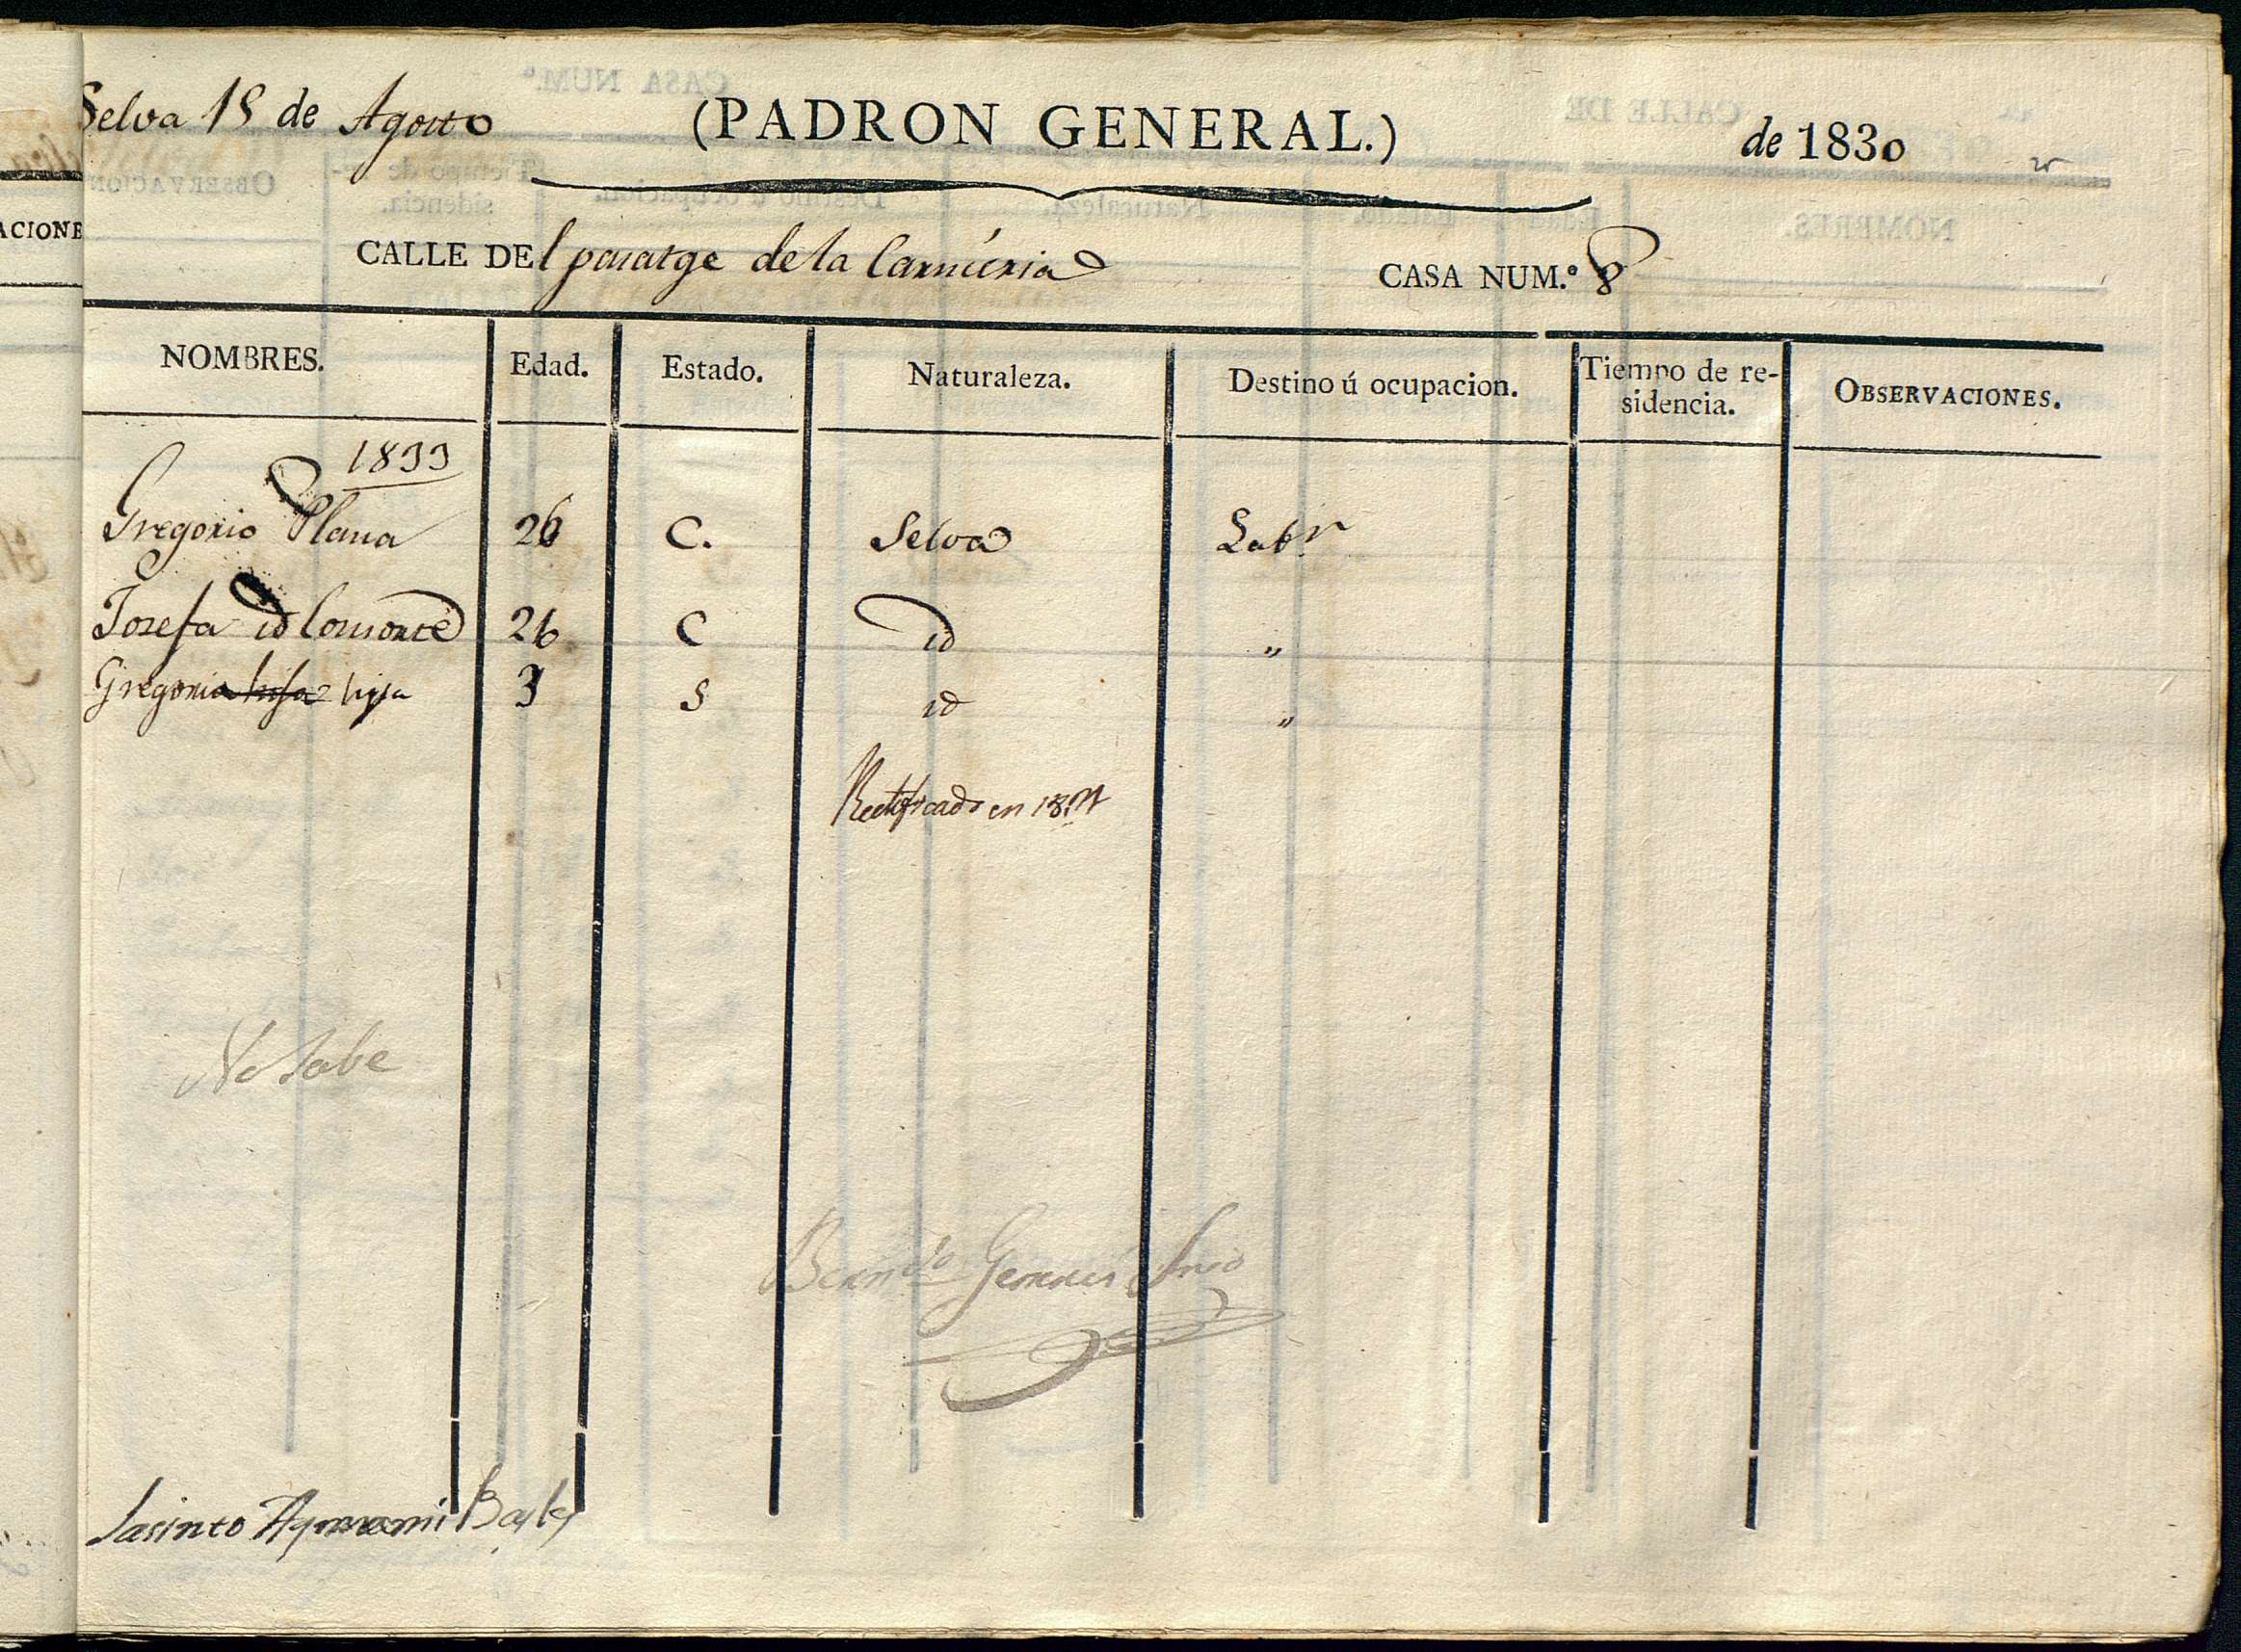 Selva 15 de Agosto (PADRON GENERAL.) de 1830
CALLE DEl pasatge de la Carnicería CASA NUM.º 8
NOMBRES. Edad. Estado. Naturaleza. Destino ú ocupacion. Tiempo de re-sidencia. OBSERVACIONES.
1833
Gregorio Plana 26 C. Selva Labr
Josefa id Consorte 26 C id "
Gregoria hija 3 S id "
Rectificado en
No Sabe
Srio
Jasinto Aymamí Bayle